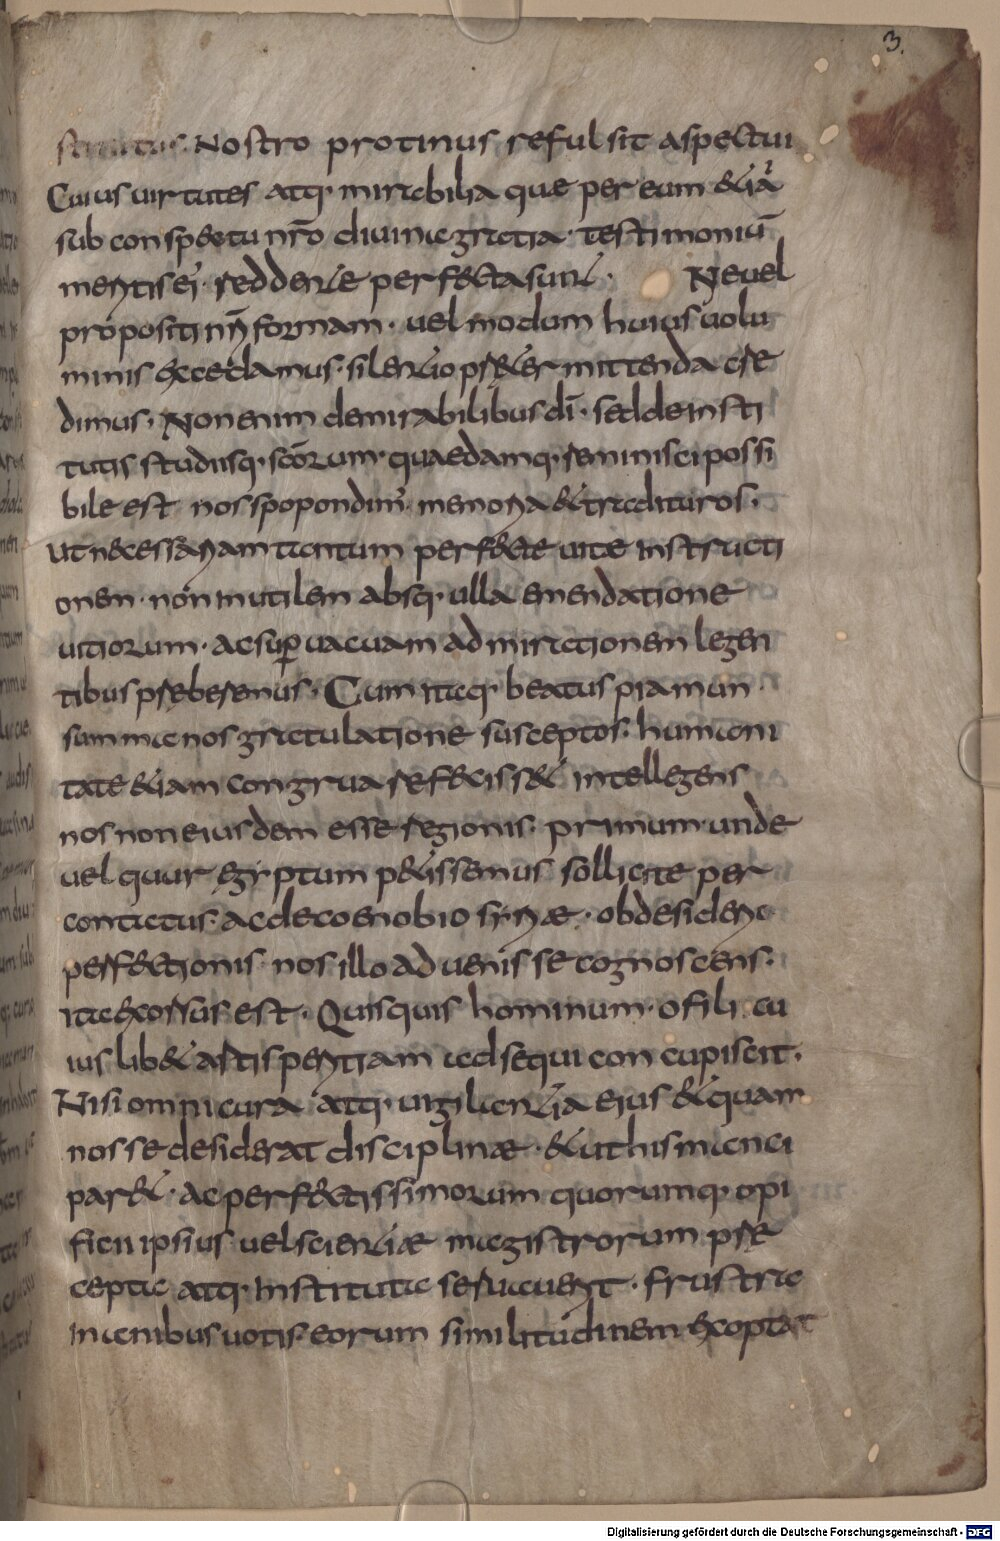 3.
Nostro protinus refulsit aspectui
Cuius uirtutes atq· mirabilia que per eum &iā
sub conspectu nr̄o diuina gratia· testimoniū
mentis ei· redden&e perfecta sunt· Neuel
propositi nr̄i formam· uel modum huius uolu
minis excedamus· silentio pr&ermittenda cre
dimus· Non enim de mirabilibus dī· sed de insti
tutis studiisq· scōrum· quaedamq· reminisci possi
bile est nos spopondim· memoria & tradituros·
ut necessariam tantum perfecte uite instructi
onem· non inutilem absq· ulla emendatione
uitiorum· ac superuacuam admirationem legen
tibus preberemus· Cum itaq· beatus piamun
summa nos gratulatione susceptos· humani
tate &iam congrua refecisset intellegens
nos non eiusdem esse regionis· primum unde
uel quur egyptum p&issemus sollicite per
contatus· ac de coenobio syriae· ob desiderio
perfectionis nos illo aduenisse cognoscens·
ita exorsus est· Quisquis hominum· o fili cu
ius lib& artis peritiam adsequi concupiscit·
Nisi omni cura atq· uigilantia eius & quam
nosse desiderat disciplinae· & ut his manci
par&· ac perfectissimorum quorumq· opi
ficii ipsius uel scientiae magistrorum pre
cepta atq· instituta seruauerit· frustra
inanibus uotis eorum similitudinem exoptat
Digitalisierung gefördert durch die Deutsche Forschungsgemeinschaft - DFG